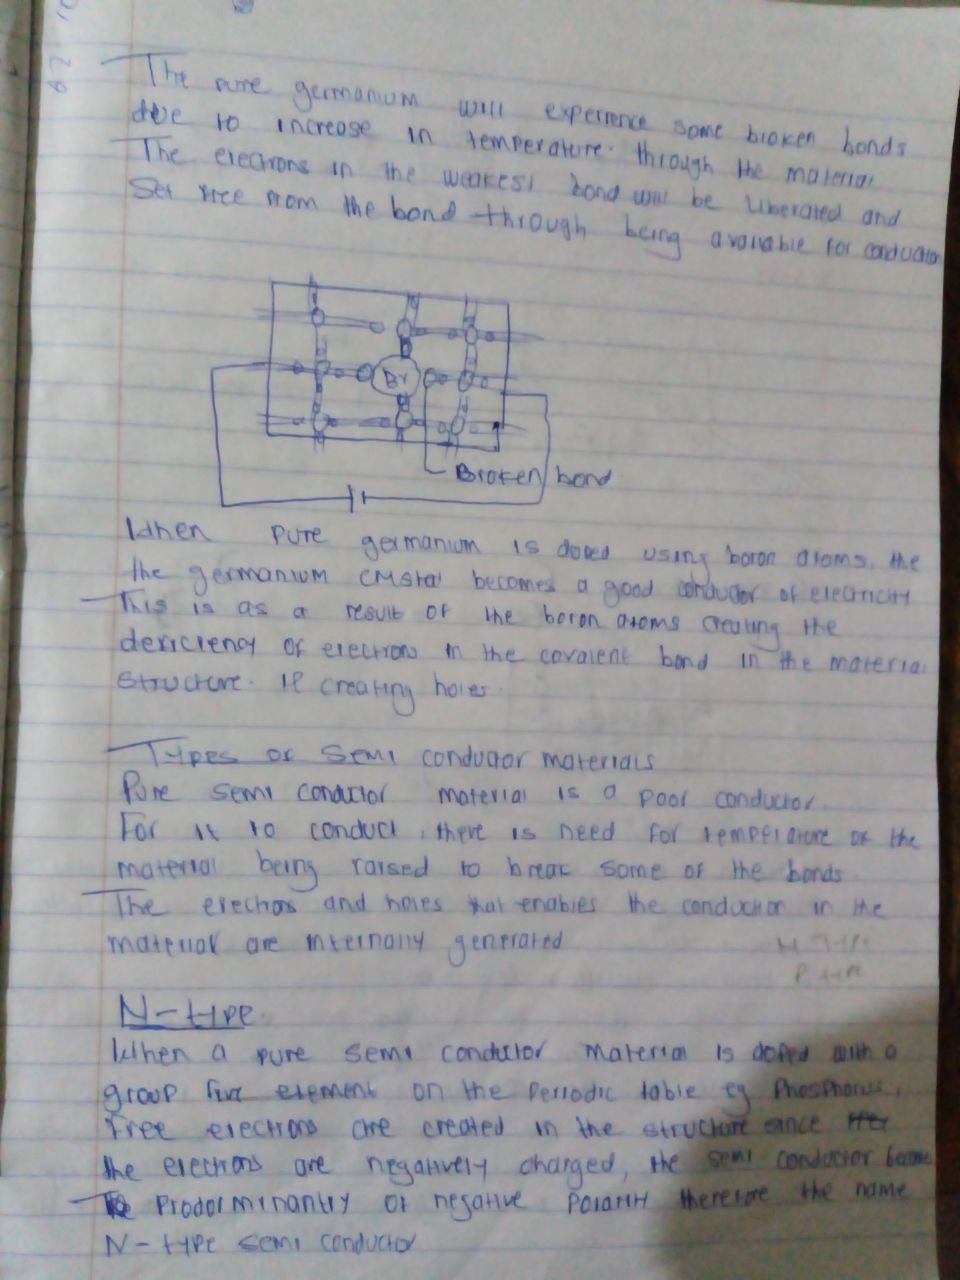 The pure germanium will experience some broken bonds
due to increase in temperature. through the material
The electrons in the weakest bond will be liberated and
Set free from the bond through being available for conduction
Br
Broken bond
When pure germanium is doped using boron atoms, the
the germanium crystal becomes a good conductor of electricity
This is as a result of the boron atoms creating the
deficiency of electrons in the covalent bond in the material
structure. IE creating holes.
Types of Semi conductor materials
Pure semi conductor material is a poor conductor.
For it to conduct, there is need for temperature of the
material being raised to break some of the bonds
The electrons and holes that enables the conduction in the
material are internally generated
N TYPE
P type
N-type
When a pure semi conductor material is doped with a
group five element on the Periodic table eg Phosphorus,
Free electrons are created in the structure since
the electrons are negatively charged, the semi conductor become
Prodorminantry of negative Polarity therefore the name
N-type semi conductor